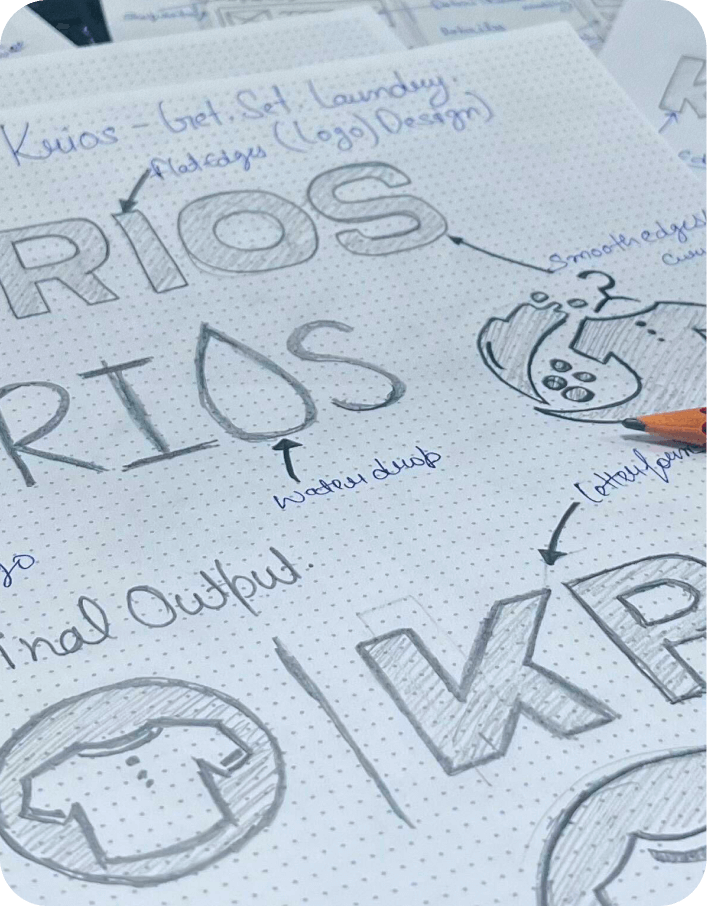 Krios - Get. Set. Laundry.
(Logo) Design)
Flat edges
RIOS
Smooth edges
RIOS
Water drop
Letterform
go
inal Output.
KR